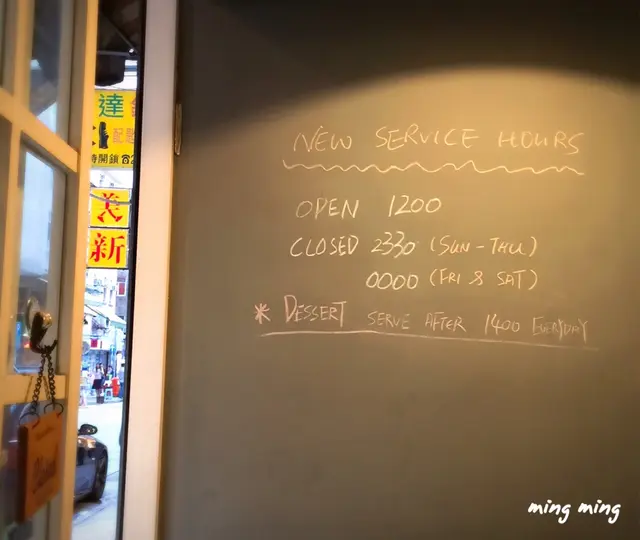 NEW SERVICE HOURS
OPEN 1200
CLOSED 2330 (SUN - THU)
0000 (FRI & SAT)
* DESSERT SERVE AFTER 1400 EVERYDAY
達
美
新
ming ming